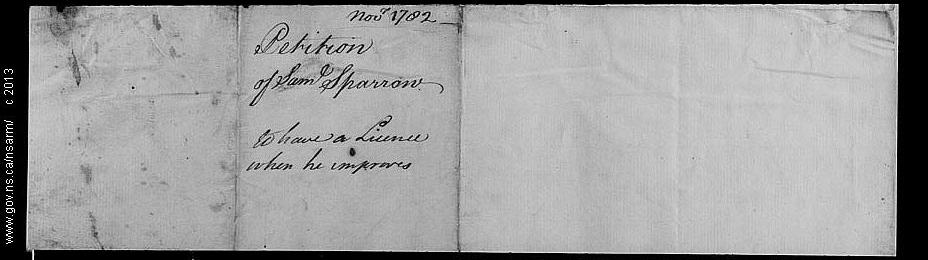 Novr 1782
Petition
of Saml Sparrow
to have a Licence
when he improves
www.gov.ns.ca/nsarm/ c 2013